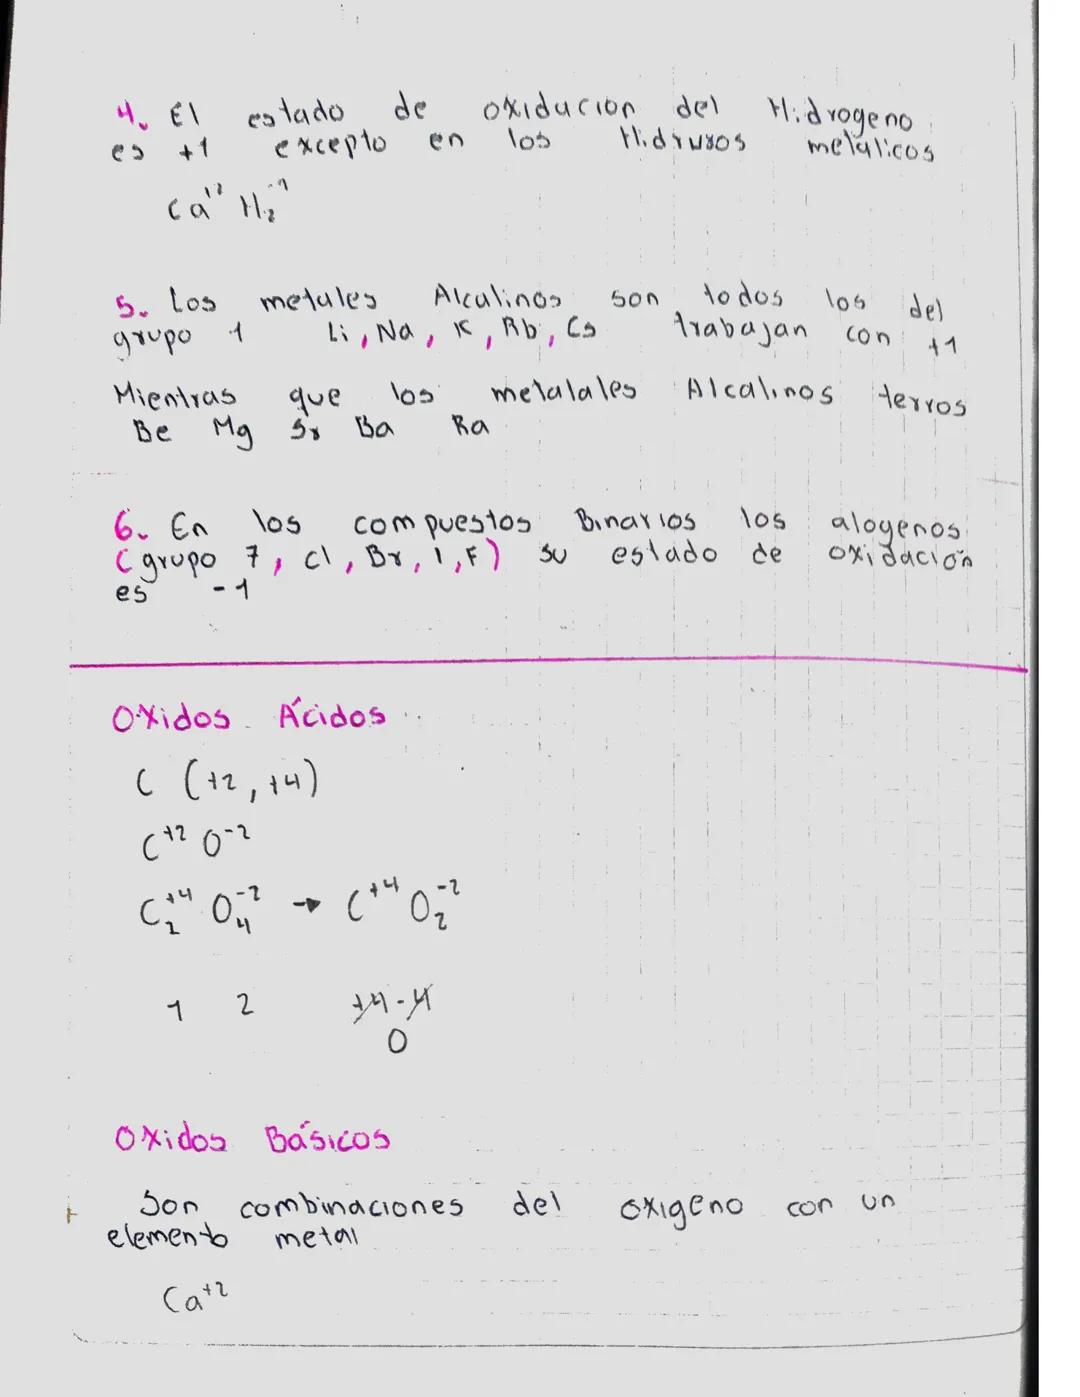 4. El estado de oxidacion del Hidrogeno
es +1 excepto en los Hidruros metalicos
Ca⁺² H₂⁻¹
5. Los metales Alcalinos son todos los del
grupo 1 Li, Na, K, Rb, Cs trabajan con +1
Mientras que los metalales Alcalinos terros
Be Mg Sr Ba Ra
6. En los compuestos Binarios los alogenos
(grupo 7, Cl, Br, I, F) su estado de oxidación
es -1
Oxidos Ácidos
C (+2, +4)
C⁺² O⁻²
C₂⁺⁴ O₄⁻² → C⁺⁴ O₂⁻²
1 2 +4-4
0
Oxidos Básicos
Son combinaciones del oxigeno con un
elemento metal
Ca⁺²